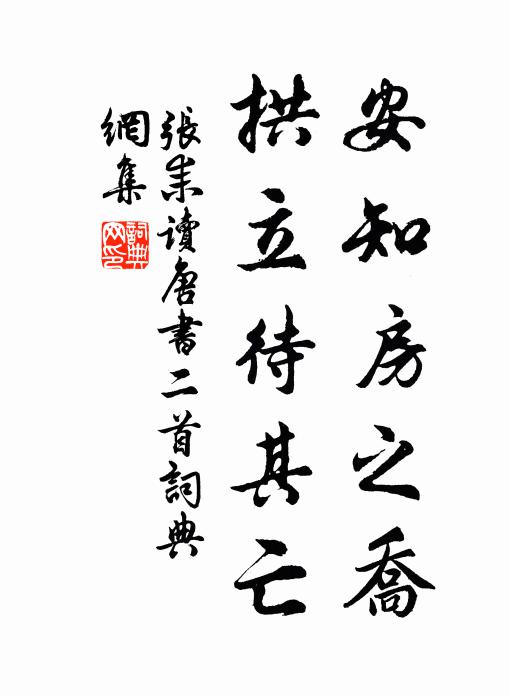 安知房之喬
拱立待其亡
張耒讀唐書二首詞典
網集
詞典
网印